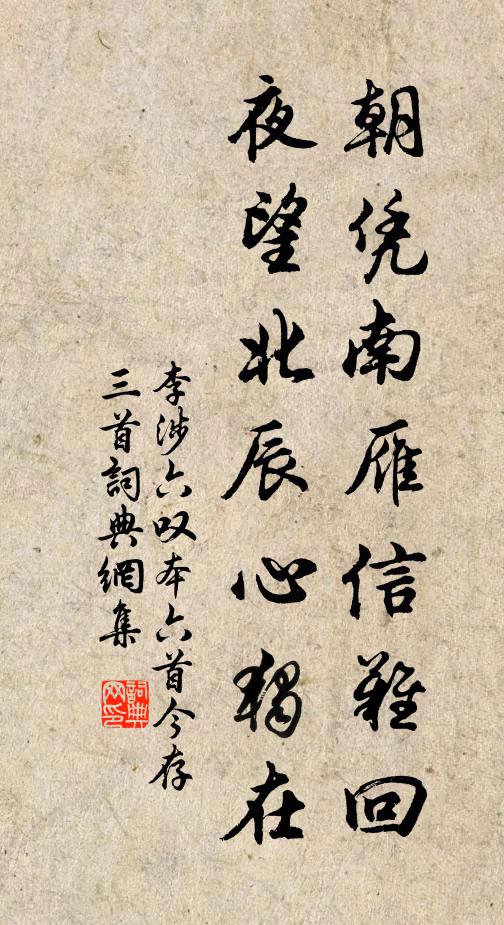 朝凭南雁信難回
夜望北辰心獨在
李涉六叹本六首今存
三首詞典網集
詞典网印